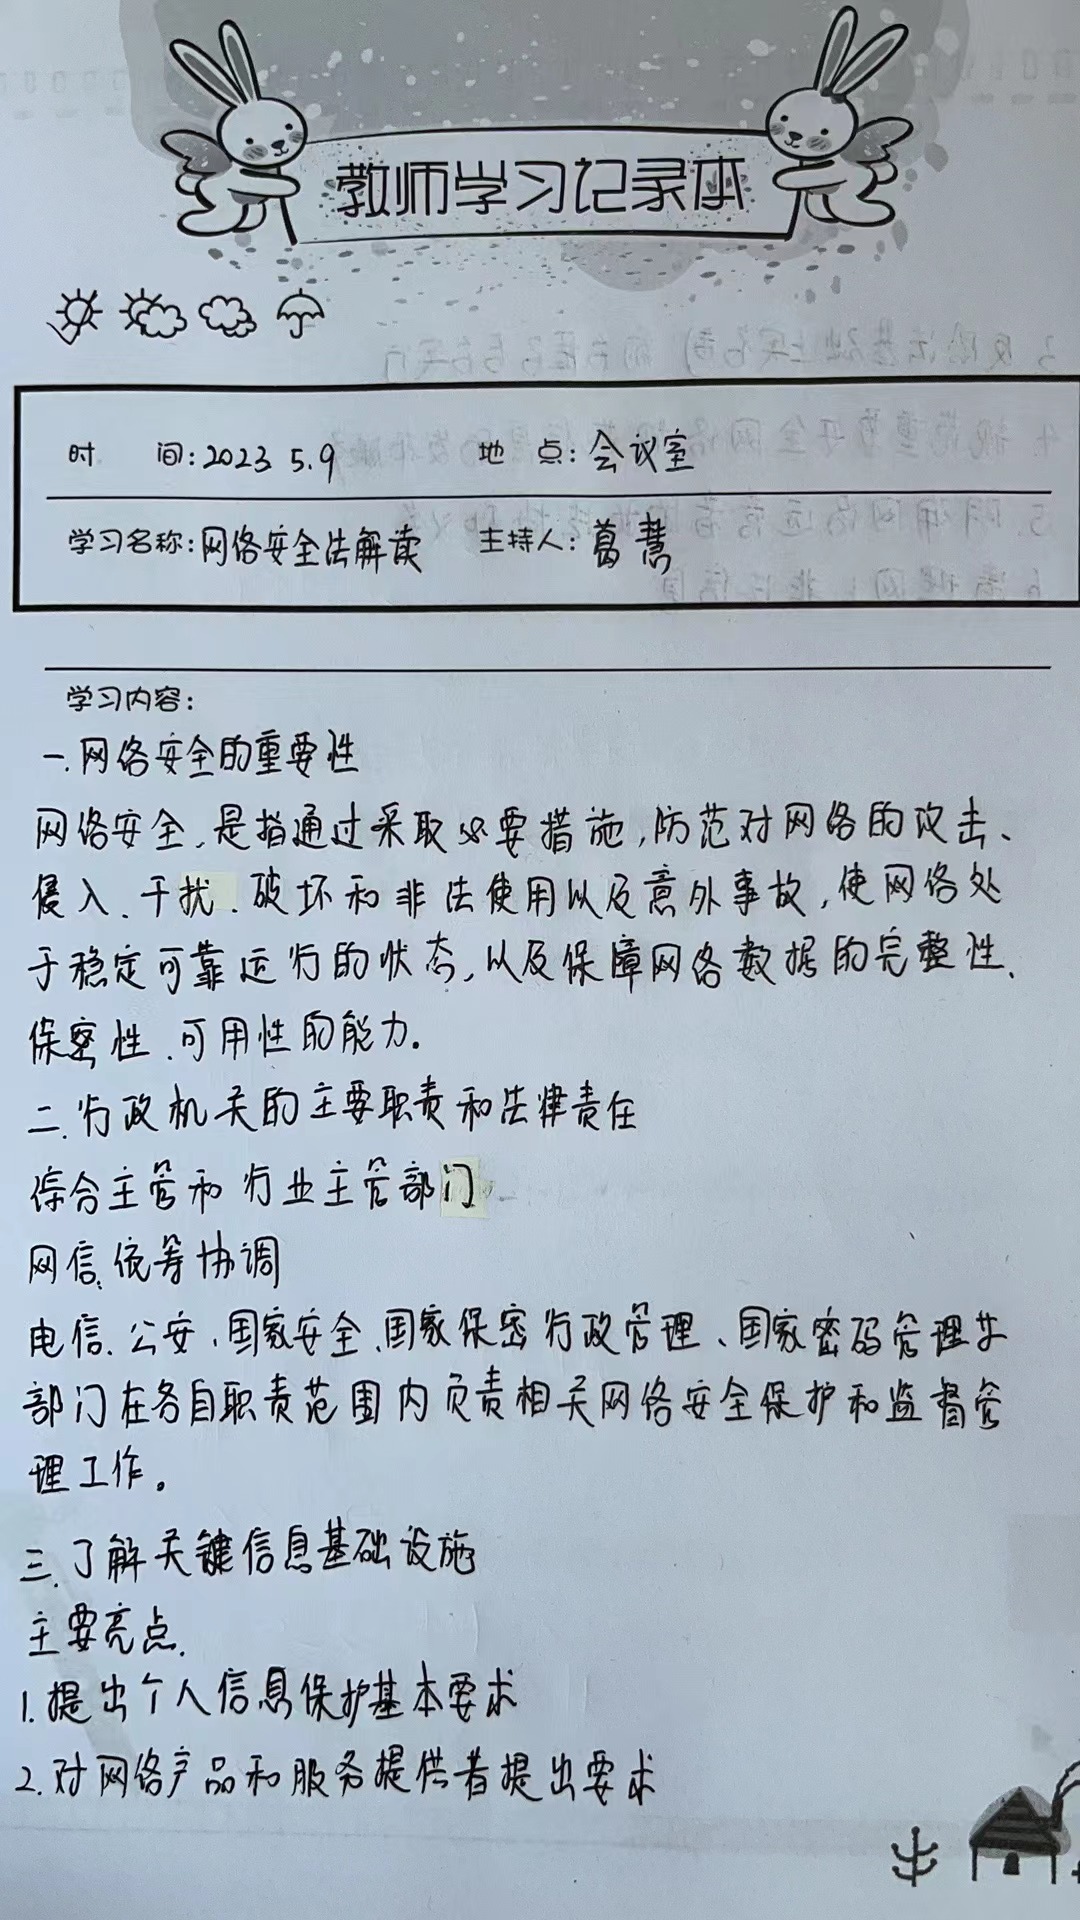 教师学习记录本
时 间:2023 5.9 地 点:会议室
学习名称:网络安全法解读 主持人:葛慧
学习内容:
一.网络安全的重要性
网络安全,是指通过采取必要措施,防范对网络的攻击、
侵入、干扰、破坏和非法使用以及意外事故,使网络处
于稳定可靠运行的状态,以及保障网络数据的完整性、
保密性、可用性的能力。
二.行政机关的主要职责和法律责任
综合主管和行业主管部门
网信:统筹协调
电信、公安、国家安全、国家保密行政管理、国家密码管理等
部门在各自职责范围内负责相关网络安全保护和监督管
理工作。
三.了解关键信息基础设施
主要亮点.
1.提出个人信息保护基本要求
2.对网络产品和服务提供者提出要求